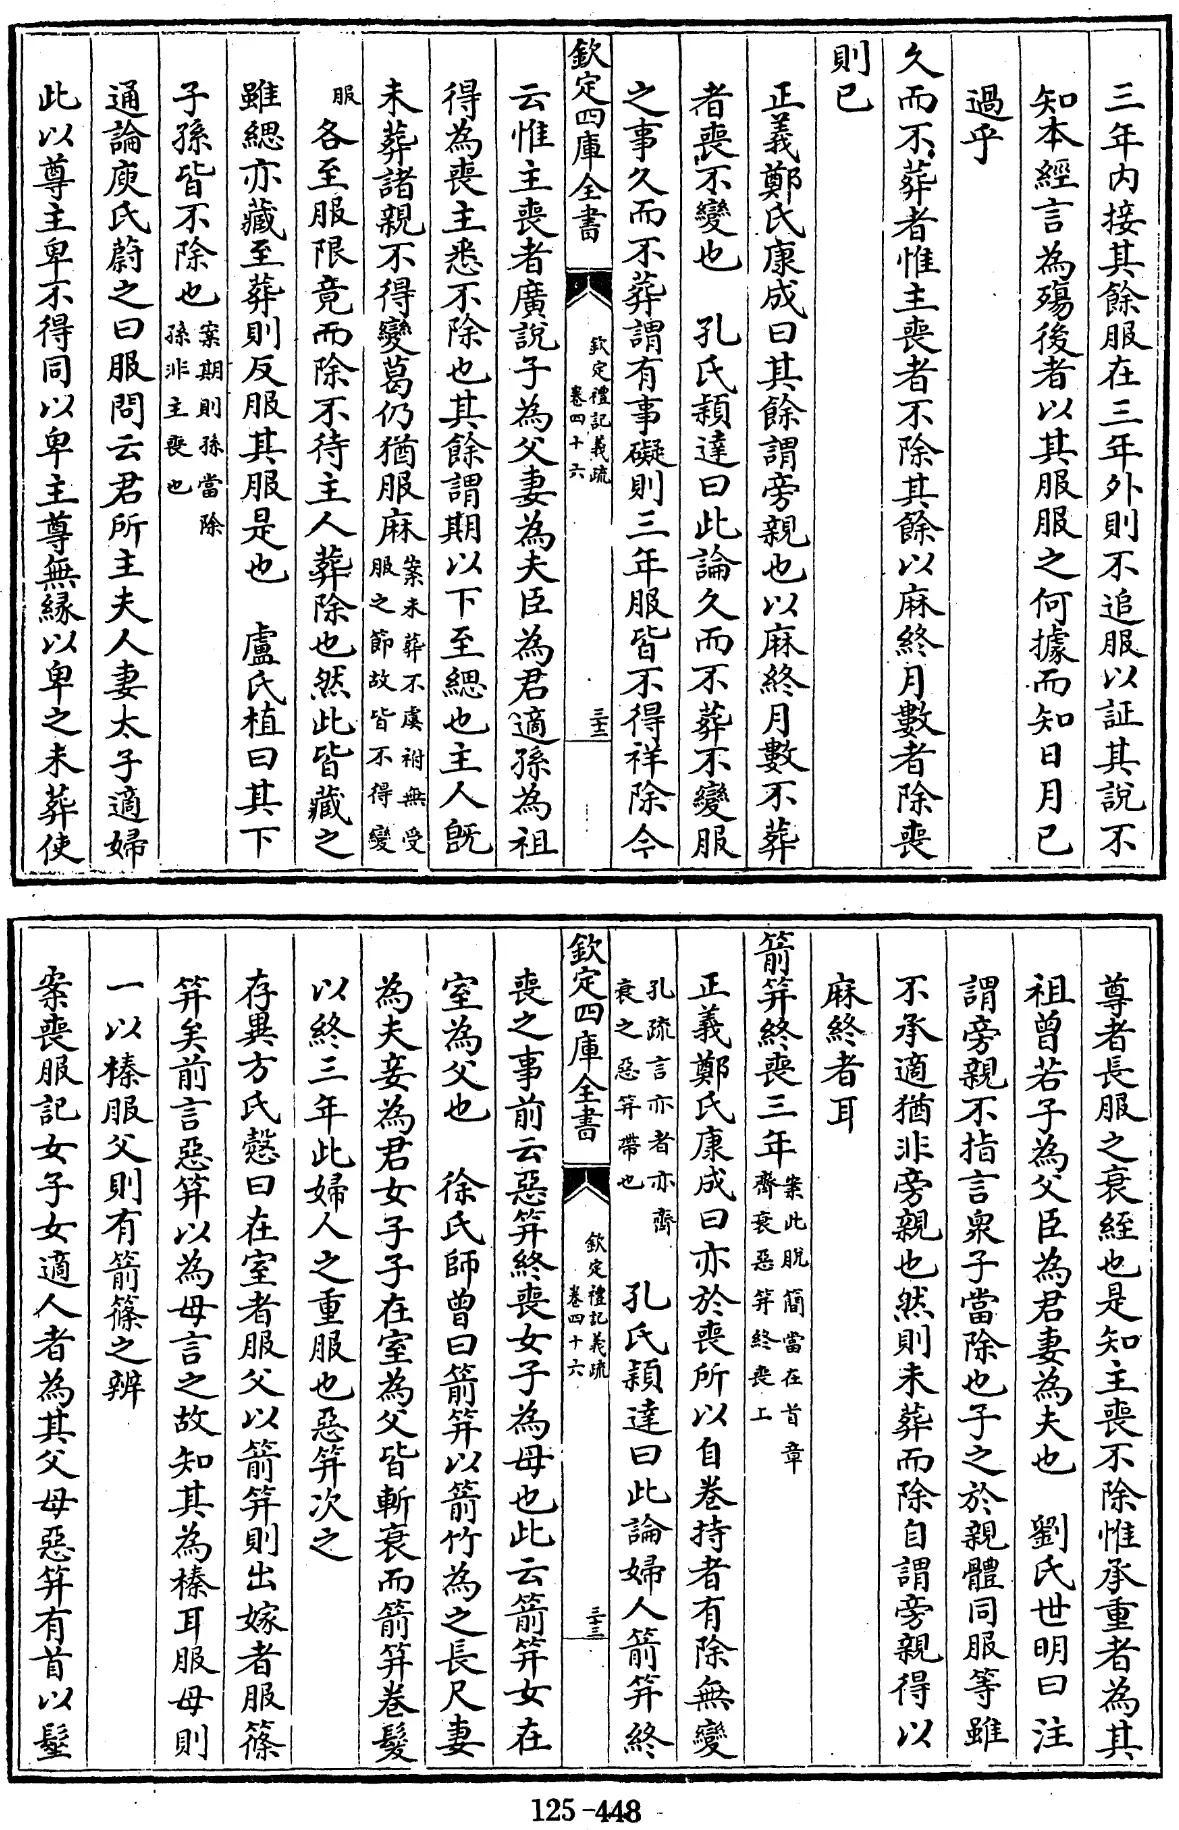 三年内接其餘服在三年外則不追服以証其說不
知本經言為殤後者以其服服之何據而知日月已
過乎
久而不葬者惟主喪者不除其餘以麻終月數者除喪
則已
正義鄭氏康成曰其餘謂旁親也以麻終月數不葬
者喪不變也　孔氏頴達曰此論久而不葬不變服
之事久而不葬謂有事礙則三年服皆不得祥除今
欽定四庫全書
欽定禮記義疏
卷四十六
三十三
云惟主喪者廣說子為父妻為夫臣為君適孫為祖
得為喪主悉不除也其餘謂期以下至緦也主人旣
未葬諸親不得變葛仍猶服麻案未葬不虞祔無受
服之節故皆不得變
服各至服限竟而除不待主人葬除也然此皆藏之
雖緦亦藏至葬則反服其服是也　盧氏植曰其下
子孫皆不除也案期則孫當除
孫非主喪也
通論庾氏蔚之曰服問云君所主夫人妻太子適婦
此以尊主卑不得同以卑主尊無縁以卑之未葬使
尊者長服之衰絰也是知主喪不除惟承重者為其
祖曾若子為父臣為君妻為夫也　劉氏世明曰注
謂旁親不指言衆子當除也子之於親體同服等雖
不承適猶非旁親也然則未葬而除自謂旁親得以
麻終者耳
箭笄終喪三年案此脫簡當在首章
齊衰惡笄終喪上
正義鄭氏康成曰亦於喪所以自卷持者有除無變
孔疏言亦者亦齊
衰之惡笄帶也　孔氏頴達曰此論婦人箭笄終
欽定四庫全書
欽定禮記義疏
卷四十六
三十三
喪之事前云惡笄終喪女子為母也此云箭笄女在
室為父也　徐氏師曾曰箭笄以箭竹為之長尺妻
為夫妾為君女子子在室為父皆斬衰而箭笄卷髮
以終三年此婦人之重服也惡笄次之
存異方氏慤曰在室者服父以箭笄則出嫁者服篠
笄矣前言惡笄以為母言之故知其為榛耳服母則
一以榛服父則有箭篠之辨
案喪服記女子女適人者為其父母惡笄有首以髽